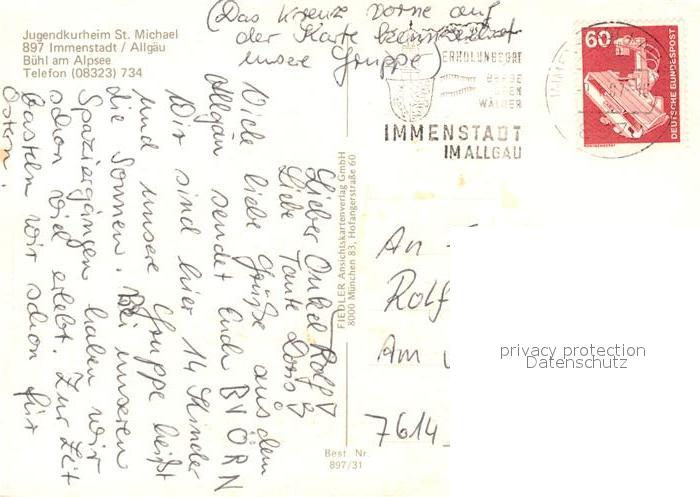 Jugendkurheim St. Michael
897 Immenstadt / Allgäu
Bühl am Alpsee
Telefon (08323) 734
(Das Kreuz vorne auf
der Karte kennzeichnet
unsere Gruppe)
ERHOLUNGSORT
BERGE
SEEN
WÄLDER
IMMENSTADT
IM ALLGÄU
60
DEUTSCHE BUNDESPOST
Lieber Onkel Rolf
Liebe Tante Doris
Viele liebe Grüße aus dem
Allgäu sendet Euch BJÖRN
Wir sind hier 14 Kinder
und unsere Gruppe heißt
die Sonnen. Bei unseren
Spaziergängen haben wir
schon viel erlebt. Zur Zeit
basteln wir schon für
Ostern.
FIEDLER Ansichtskartenverlag GmbH
8000 München 83, Hofangerstraße 60
An
Rolf
Am
7614
Best. Nr.
897/31
privacy protection
Datenschutz